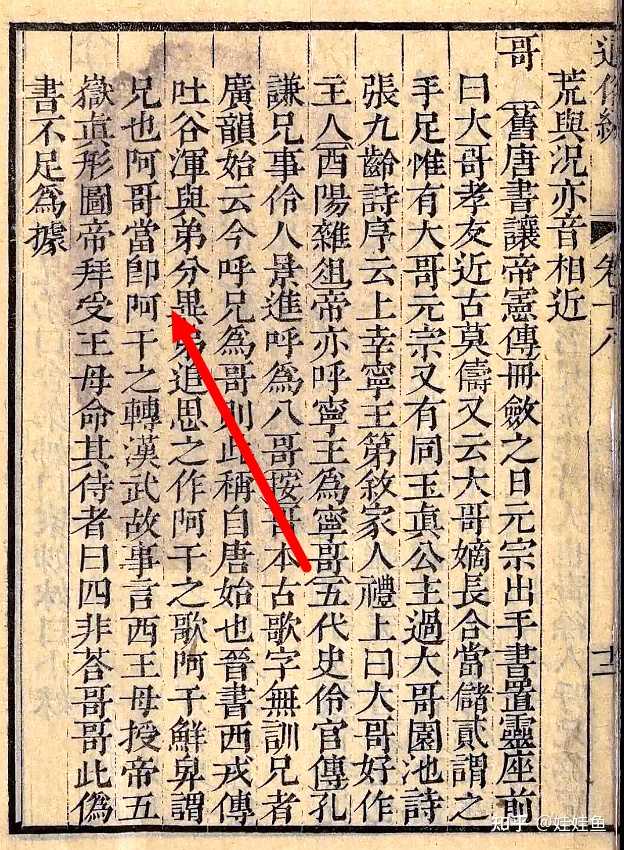 通俗編 卷十八
荒與況亦音相近
哥〔舊唐書讓帝憲傳〕冊斂之日元宗出手書置靈座前
曰大哥孝友近古莫儔又云大哥嫡長合當儲貳謂之
手足惟有大哥元宗又有同玉眞公主過大哥園池詩
張九齡詩序云上幸寧王第敘家人禮上曰大哥好作
主人〔酉陽雜俎〕帝亦呼寧王爲寧哥〔五代史伶官傳〕孔
謙兄事伶人景進呼爲八哥〔按〕哥本古歌字無訓兄者
廣韻始云今呼兄爲哥則此稱自唐始也晉書西戎傳
吐谷渾與弟分異弟追思之作阿干之歌阿干鮮卑謂
兄也阿哥當卽阿干之轉漢武故事言西王母授帝五
嶽眞形圖帝拜受王母命其侍者曰四非荅哥哥此僞
書不足爲據
知乎 @娃娃鱼